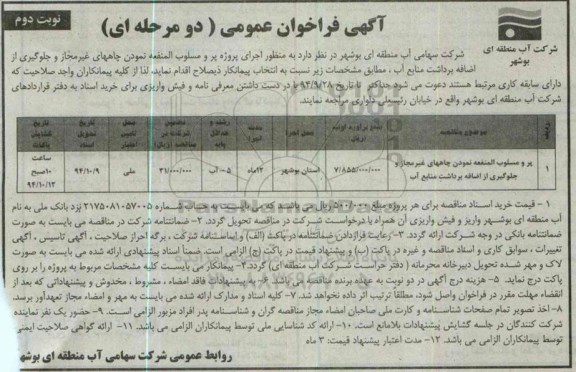 نوبت دوم
آگهی فراخوان عمومی ( دو مرحله ای)
شرکت آب منطقه ای
بوشهر
شرکت سهامی آب منطقه ای بوشهر در نظر دارد به منظور اجرای پروژه پر و مسلوب المنفعه نمودن چاههای غیرمجاز و جلوگیری از
اضافه برداشت منابع آب ، مطابق مشخصات زیر نسبت به انتخاب پیمانکار ذیصلاح اقدام نماید. لذا از کلیه پیمانکاران واجد صلاحیت که
دارای سابقه کاری مرتبط هستند دعوت می شود حداکثر تا تاریخ ۹۴/۹/۲۸ با در دست داشتن معرفی نامه و فیش واریزی برای خرید اسناد به دفتر قراردادهای
شرکت آب منطقه ای بوشهر واقع در خیابان رئیسعلی دلواری مراجعه نمایند.
ردیف موضوع مناقصه مبلغ برآورد اولیه (ریال) محل اجرا مدت اجرا رتبه و حداقل پایه تضمین شرکت در مناقصه (ریال) محل تامین اعتبار تاریخ تحویل اسناد تاریخ گشایش پاکات
۱ پر و مسلوب المنفعه نمودن چاههای غیرمجاز و جلوگیری از اضافه برداشت منابع آب ۷/۸۵۵/۰۰۰/۰۰۰ استان بوشهر ۱۲ماه ۵ - آب ۳۱/۰۰۰/۰۰۰ ملی ۹۴/۱۰/۹ ساعت ۱۰صبح ۹۴/۱۰/۱۲
۱ - قیمت خرید اسناد مناقصه برای هر پروژه مبلغ ۵۰۰/۰۰۰ ریال می باشد که می بایست به حساب شماره ۲۱۷۵۰۸۱۰۵۷۰۰۵ نزد بانک ملی به نام
آب منطقه ای بوشهر واریز و فیش واریزی آن همراه با درخواست شرکت در مناقصه تحویل گردد. ۲- ضمانتنامه شرکت در مناقصه می بایست به صورت
ضمانتنامه بانکی در وجه شرکت ارائه گردد. ۳- رعایت قراردادن ضمانتنامه در پاکت (الف) و اساسنامه شرکت ، برگه احراز صلاحیت ، آگهی تاسیس ، آگهی
تغییرات ، سوابق کاری و اسناد مناقصه و غیره در پاکت (ب) و پیشنهاد قیمت در پاکت (ج) الزامی است. ضمناً اسناد پیشنهادی ارائه شده می بایست به صورت
لاک و مهر شده تحویل دبیرخانه محرمانه ( دفتر حراست شرکت آب منطقه ای) گردد. ۴- پیمانکار می بایست کلیه مشخصات مربوط به پروژه را بر روی
پاکت درج نماید. ۵- هزینه درج آگهی در دو نوبت به عهده برنده مناقصه می باشد. ۶- به پیشنهادات فاقد امضاء ، مشروط ، مخدوش و پیشنهاداتی که بعد از
انقضاء مهلت مقرر در فراخوان واصل شود، مطلقاً ترتیب اثر داده نخواهد شد. ۷- کلیه اسناد و مدارک ارائه شده می بایست به مهر و امضاء مجاز تعهدآور برسد.
۸- اخذ تصویر تمام صفحات شناسنامه و کارت ملی صاحبان امضاء مجاز مناقصه گران و شناسنامه پدر افراد مزبور الزامی است. ۹- حضور یک نفر نماینده
شرکت کنندگان در جلسه گشایش پیشنهادات بلامانع است. ۱۰- ارائه کد شناسایی ملی توسط پیمانکاران الزامی می باشد. ۱۱ - ارائه گواهی صلاحیت ایمنی
توسط پیمانکاران الزامی می باشد. ۱۲- مدت اعتبار پیشنهاد قیمت: ۳ ماه
روابط عمومی شرکت سهامی آب منطقه ای بوشهر